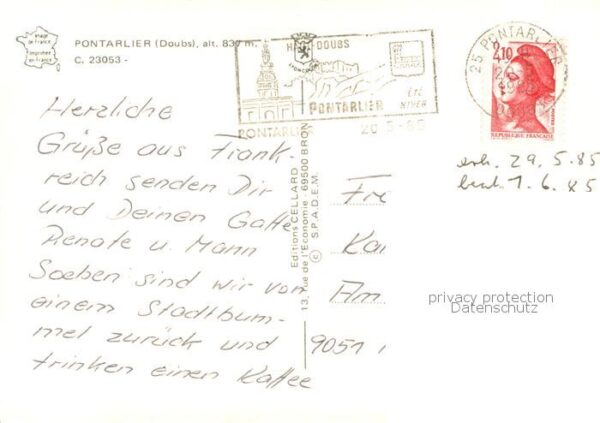 Image
de France
Imprimée
en France
PONTARLIER (Doubs), alt. 837 m.
C. 23053 -
HAUT-DOUBS
PONTARLIER
ÉTÉ
HIVER
PONTARLIER
20 5-85
25 PONTARLIER
2,10
REPUBLIQUE FRANÇAISE
erh. 29.5.85
beat. 1.6.85
Herzliche
Grüße aus Frank-
reich senden Dir
und Deinen Gatte
Renate u. Mann
Soeben sind wir von
einem Stadtbum-
mel zurück und
trinken einen Kaffee
Editions CELLARD
13, rue de l'Economie - 69500 BRON
© S.P.A.D.E.M.
Fr
Ka
Am
9051
privacy protection
Datenschutz